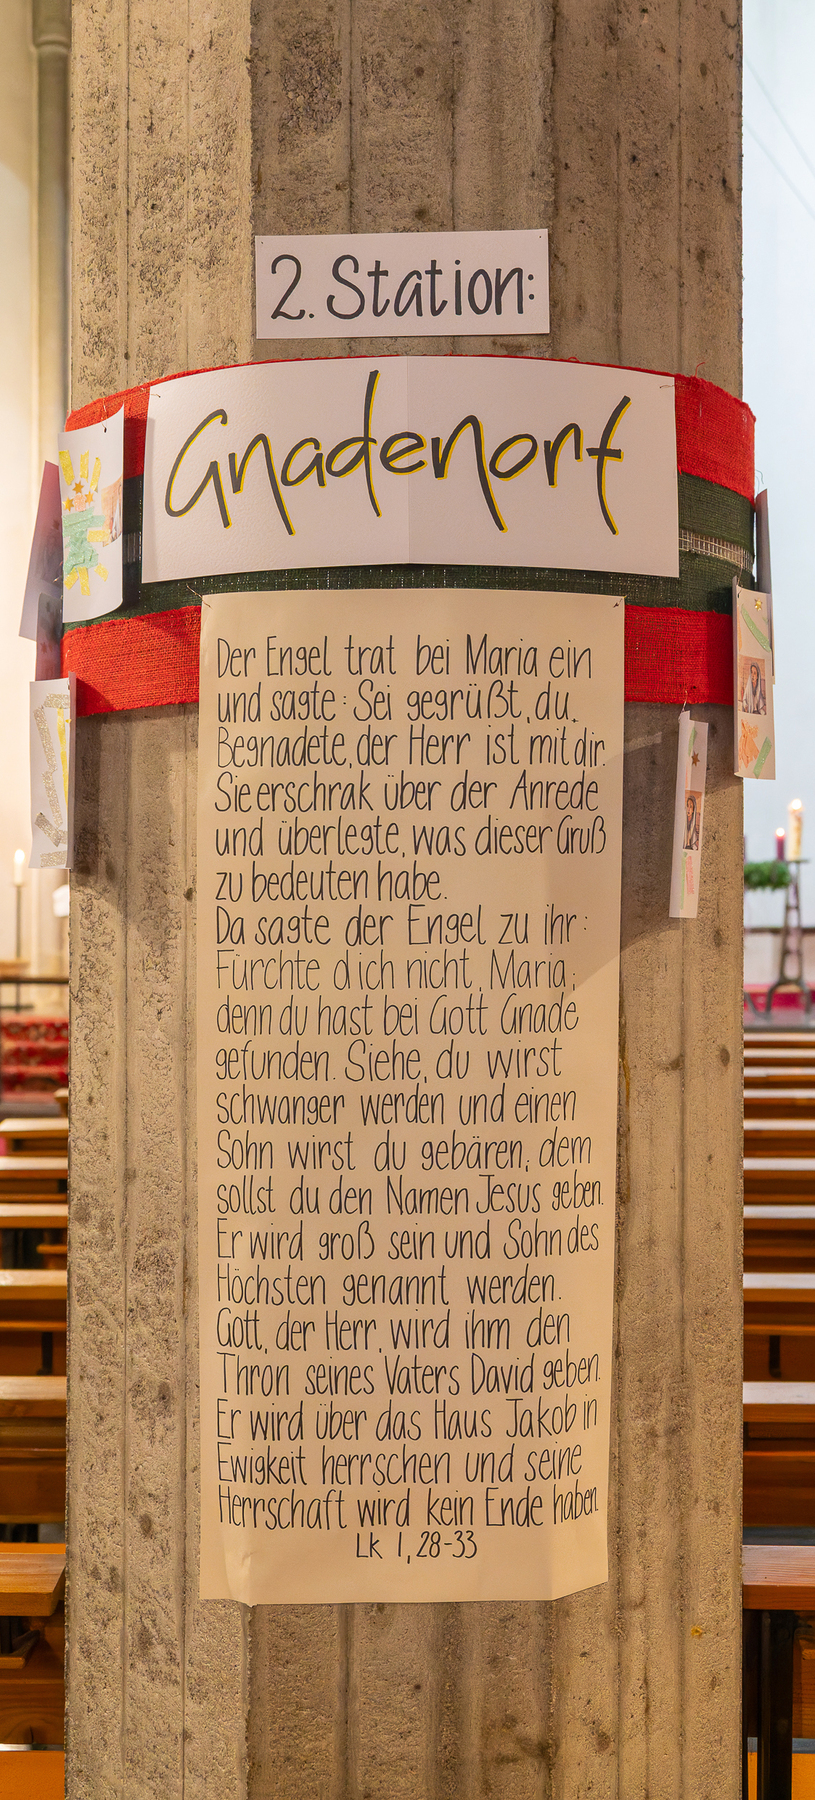 2. Station:
Gnadenort
Der Engel trat bei Maria ein
und sagte: Sei gegrüßt, du
Begnadete, der Herr ist mit dir.
Sie erschrak über der Anrede
und überlegte, was dieser Gruß
zu bedeuten habe.
Da sagte der Engel zu ihr:
Fürchte dich nicht, Maria;
denn du hast bei Gott Gnade
gefunden. Siehe, du wirst
schwanger werden und einen
Sohn wirst du gebären; dem
sollst du den Namen Jesus geben.
Er wird groß sein und Sohn des
Höchsten genannt werden.
Gott, der Herr, wird ihm den
Thron seines Vaters David geben.
Er wird über das Haus Jakob in
Ewigkeit herrschen und seine
Herrschaft wird kein Ende haben.
Lk 1, 28-33